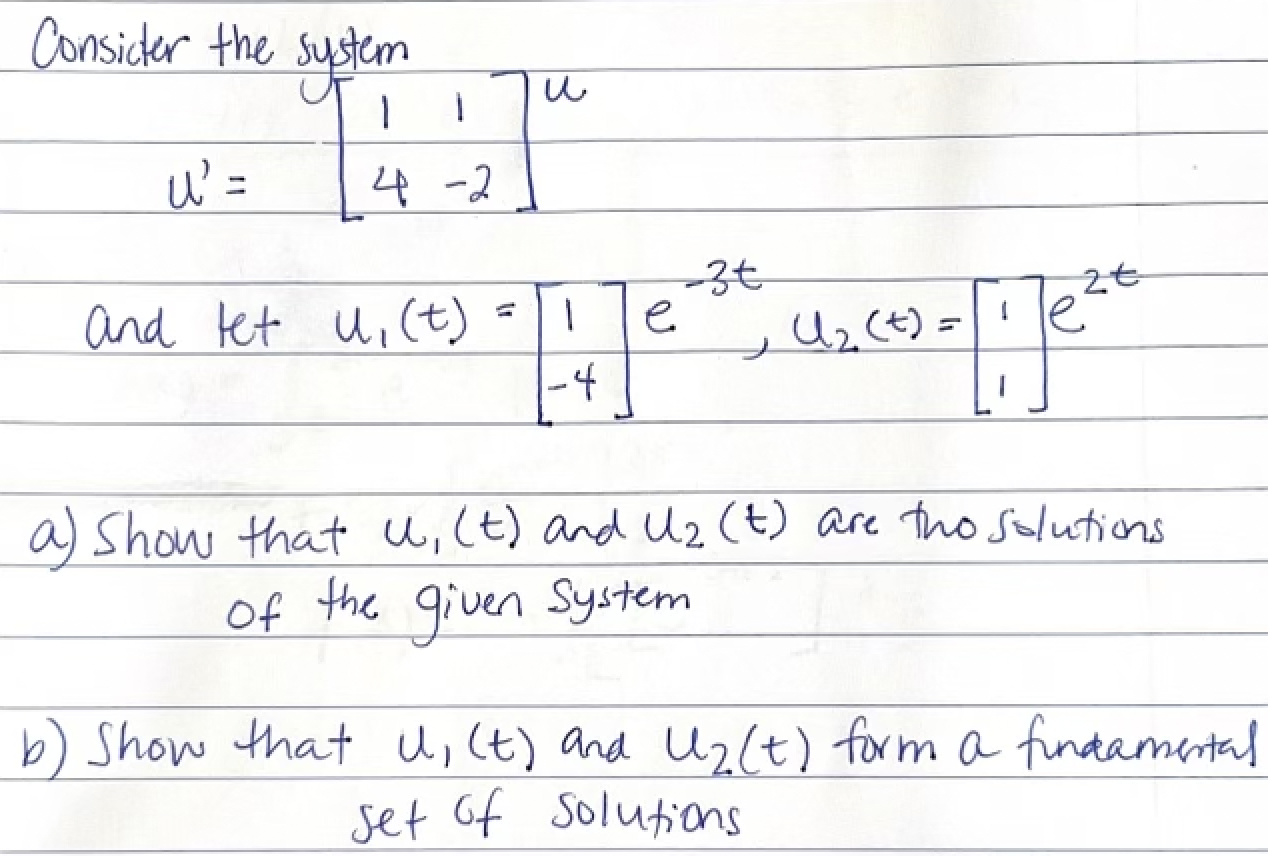 Consider the system
u' = [1 1; 4 -2] u
and let u₁(t) = [1; -4] e^{-3t}, u₂(t) = [1; 1] e^{2t}
a) Show that u₁(t) and u₂(t) are two solutions
of the given system
b) Show that u₁(t) and u₂(t) form a fundamental
set of solutions